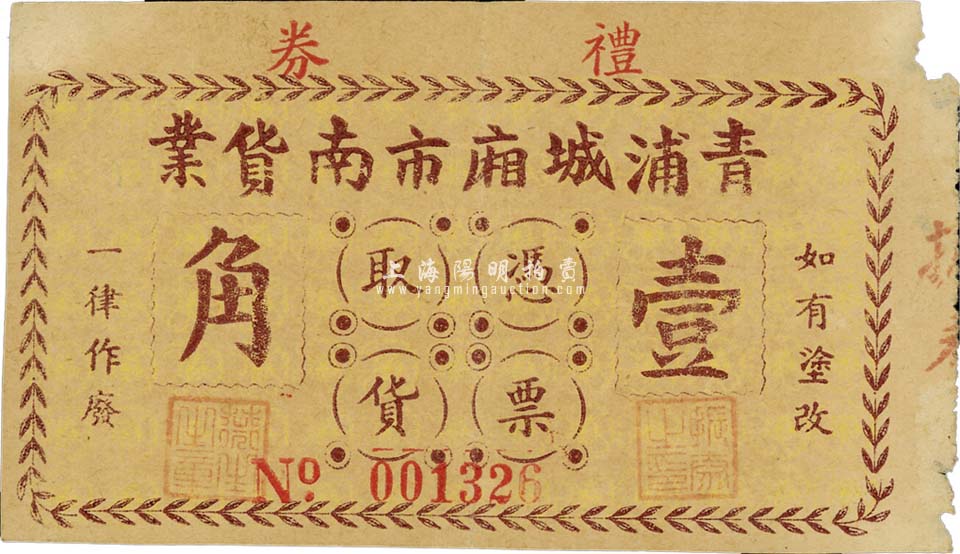 禮券
青浦城廂市南貨業
壹角
憑票取貨
如有塗改
一律作廢
No 001326
上海陽明拍賣
www.yangmingauction.com